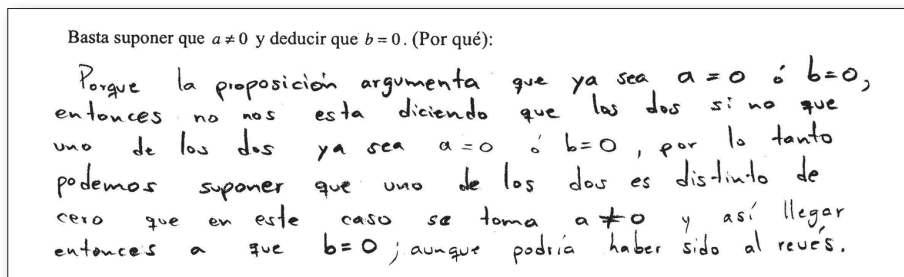 Basta suponer que a ≠ 0 y deducir que b = 0. (Por qué):
Porque la proposición argumenta que ya sea a = 0 ó b=0,
entonces no nos esta diciendo que los dos si no que
uno de los dos ya sea a = 0 ó b=0, por lo tanto
podemos suponer que uno de los dos es distinto de
cero que en este caso se toma a ≠ 0 y así llegar
entonces a que b=0; aunque podría haber sido al revés.